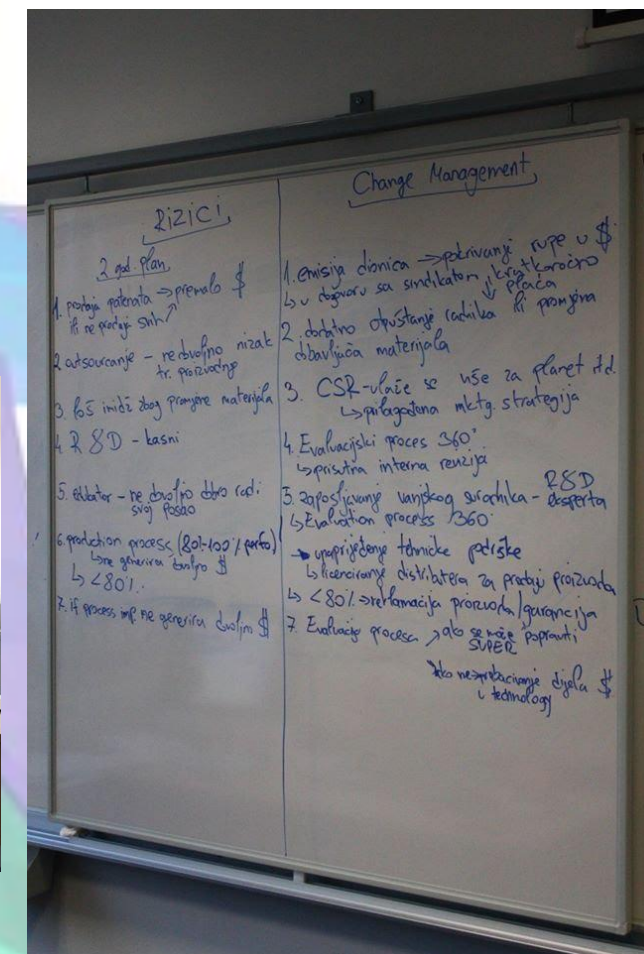 RIZICI
2 god. plan
1. prodaja patenata → premalo $
ili ne prodaja svih
2. outsourcanje - nedovoljno nizak
tr. proizvodnje
3. loš imidž zbog promjene materijala
4. R&D - kasni
5. - ne dovoljno dobro radi
svoj posao
6. production process (80%-100%
↳ ne generira dovoljno $
↳ <80%
7. if process imp. ne generira dovoljno $
Change Management
1. emisija dionica → pokrivanje rupe u $
↳ u dogovoru sa sindikatom, kratkoročno
↓ plaća
2. dodatno otpuštanje radnika ili promjena
dobavljača materijala
3. CSR - ulaže se više za planet itd.
↳ prilagođena mktg. strategija
4. Evaluacijski proces 360°
↳ prisutna interna revizija
5. zapošljavanje vanjskog suradnika - R&D
eksperta
↳ Evaluation process 360°
unaprijeđenje tehničke podrške
↳ licenciranje distributera za prodaju proizvoda
↳ <80% → reklamacija proizvoda/garancija
7. Evaluacija procesa → ako se može popraviti
SUPER
ako ne → prebacivanje dijela $
u technology